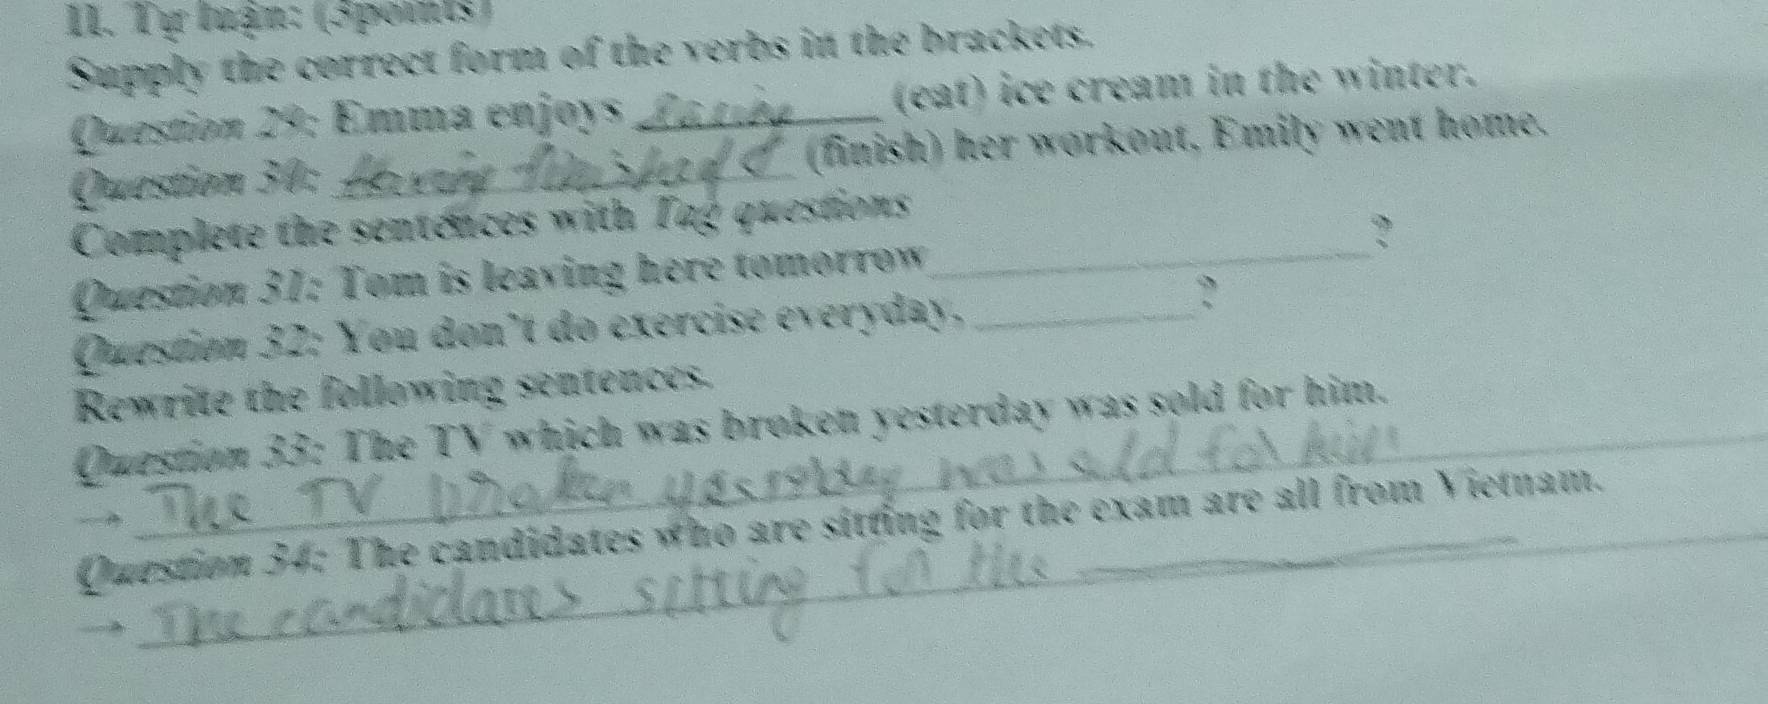 II. Tự luận: (3points)
Supply the correct form of the verbs in the brackets.
Question 29: Emma enjoys eating (eat) ice cream in the winter.
Question 30: Having finished (finish) her workout, Emily went home.
Complete the sentences with Tag questions
Question 31: Tom is leaving here tomorrow ?
Question 32: You don't do exercise everyday, ?
Rewrite the following sentences.
Question 33: The TV which was broken yesterday was sold for him.
→ The TV broken yesterday was sold for him
Question 34: The candidates who are sitting for the exam are all from Vietnam.
→ The candidates sitting for the